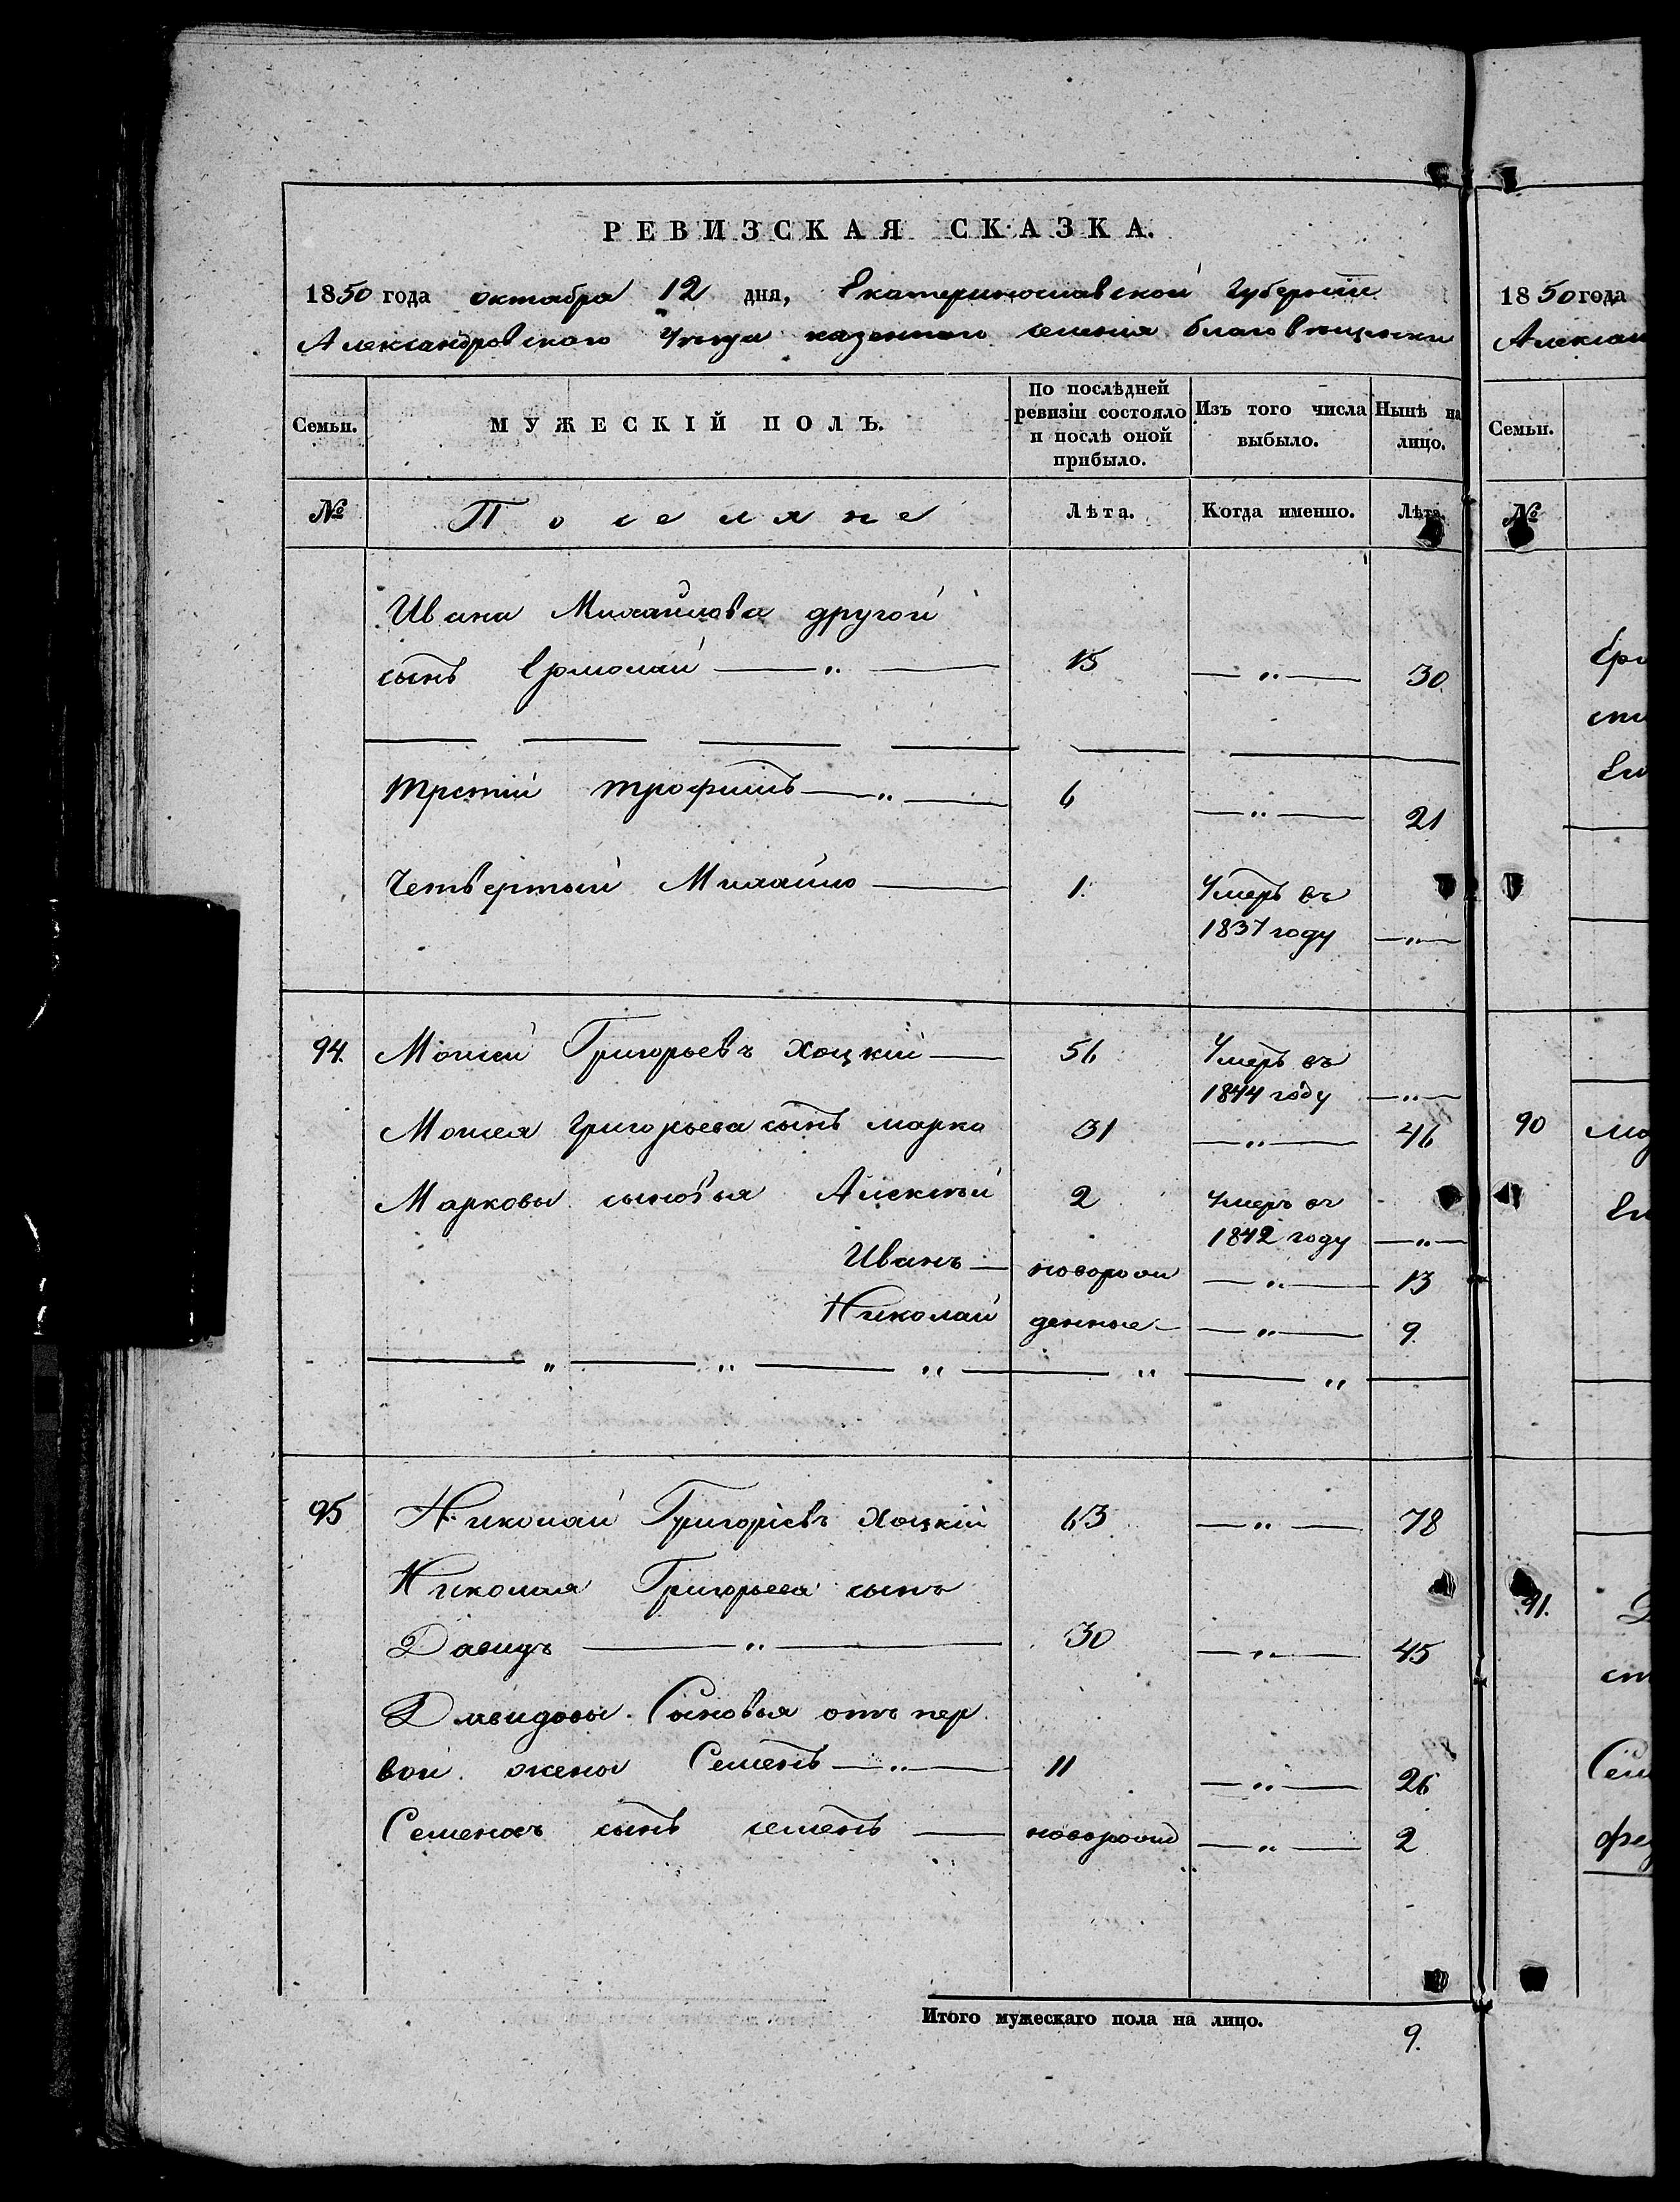 РЕВИЗСКАЯ СКАЗКА.
1850 года октабра 12 дня, Екатеринославской Губернiи
Александровскаго Уѣзда казеннаго селенiя благовѣщенки
Семьи.
МУЖЕСКIЙ ПОЛЪ.
По послѣдней ревизiи состояло и послѣ оной прибыло.
Изъ того числа выбыло.
Нынѣ на лицо.
№
Поселяне
Лѣта.
Когда именно.
Лѣта.
Ивана Михайлова другой
сынъ Ермолай —„— 15 —„— 30
третiй трофимъ —„— 6 —„— 21
Четвертый Михайло — 1. Умеръ въ
1837 году —„—
94. Мосей Григорьевъ Хоцкiй — 56 Умеръ въ
1844 году —„—
Мосея Григорьева сынъ марко 31 —„— 46
Марковы сыновья Алексѣй 2 Умеръ въ
1842 году —„—
Иванъ — новорож —„— 13
Николай денные — —„— 9.
95 Николай Григорiевъ Хоцкiй 63 —„— 78
Николая Григорьева сынъ
Давидъ —„— 30 —„— 45
Давидовы Сыновья отъ пер
вой жены Семенъ —„— 11 —„— 26
Семеновъ сынъ семенъ — новорожд —„— 2
Итого мужескаго пола на лицо.
9.
1850 года
Алексан
Семьи.
№
90
91.